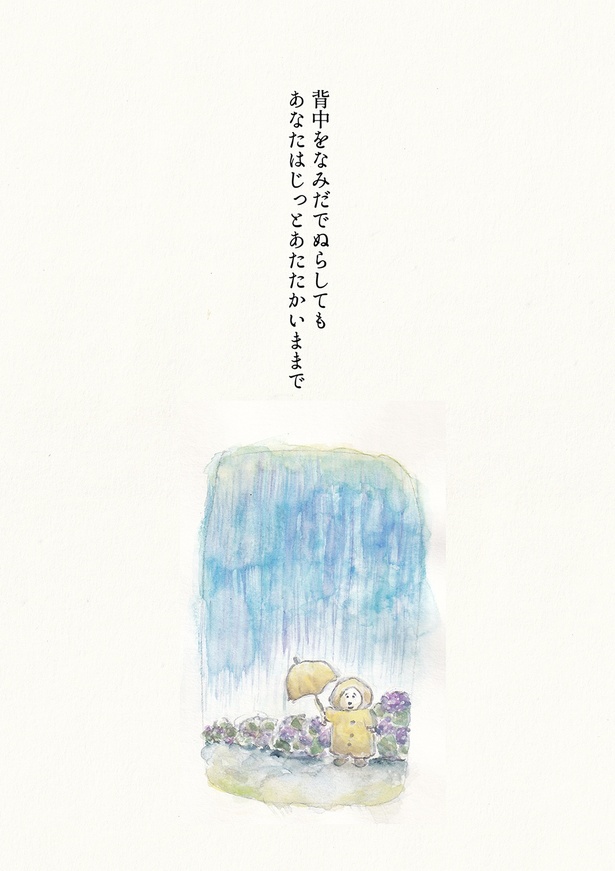 背中をなみだでぬらしても
あなたはじっとあたたかいままで